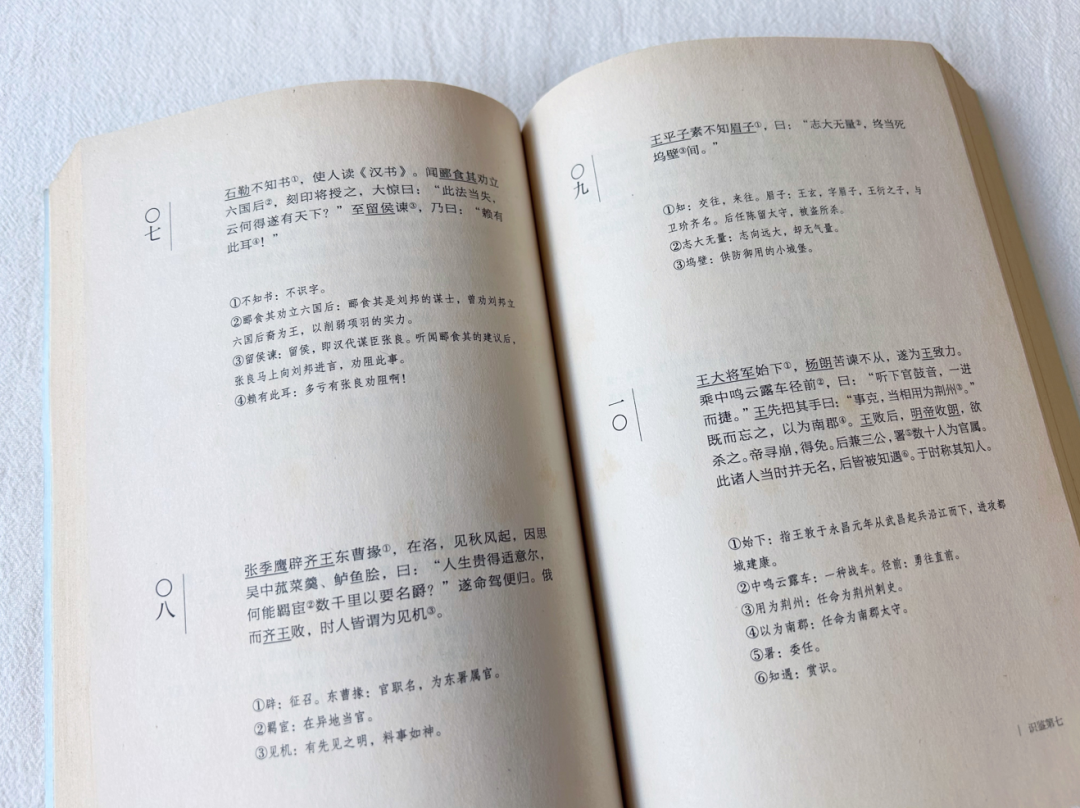 〇七
石勒不知书①，使人读《汉书》。闻郦食其劝立
六国后②，刻印将授之，大惊曰：“此法当失，
云何得遂有天下？”至留侯谏③，乃曰：“赖有
此耳④！”
①不知书：不识字。
②郦食其劝立六国后：郦食其是刘邦的谋士，曾劝刘邦立
六国后裔为王，以削弱项羽的实力。
③留侯谏：留侯，即汉代谋臣张良。听闻郦食其的建议后，
张良马上向刘邦进言，劝阻此事。
④赖有此耳：多亏有张良劝阻啊！
〇八
张季鹰辟齐王东曹掾①，在洛，见秋风起，因思
吴中菰菜羹、鲈鱼脍，曰：“人生贵得适意尔，
何能羁宦②数千里以要名爵？”遂命驾便归。俄
而齐王败，时人皆谓为见机③。
①辟：征召。东曹掾：官职名，为东署属官。
②羁宦：在异地当官。
③见机：有先见之明，料事如神。
〇九
王平子素不知眉子①，曰：“志大无量②，终当死
坞壁③间。”
①知：交往，来往。眉子：王玄，字眉子，王衍之子，与
卫玠齐名。后任陈留太守，被盗所杀。
②志大无量：志向远大，却无气量。
③坞壁：供防御用的小城堡。
一〇
王大将军始下①，杨朗苦谏不从，遂为王致力。
乘中鸣云露车径前②，曰：“听下官鼓音，一进
而捷。”王先把其手曰：“事克，当相用为荆州③。”
既而忘之，以为南郡④。王败后，明帝收朗，欲
杀之。帝寻崩，得免。后兼三公，署⑤数十人为官属。
此诸人当时并无名，后皆被知遇⑥。于时称其知人。
①始下：指王敦于永昌元年从武昌起兵沿江而下，进攻都
城建康。
②中鸣云露车：一种战车。径前：勇往直前。
③用为荆州：任命为荆州刺史。
④以为南郡：任命为南郡太守。
⑤署：委任。
⑥知遇：赏识。
识鉴第七